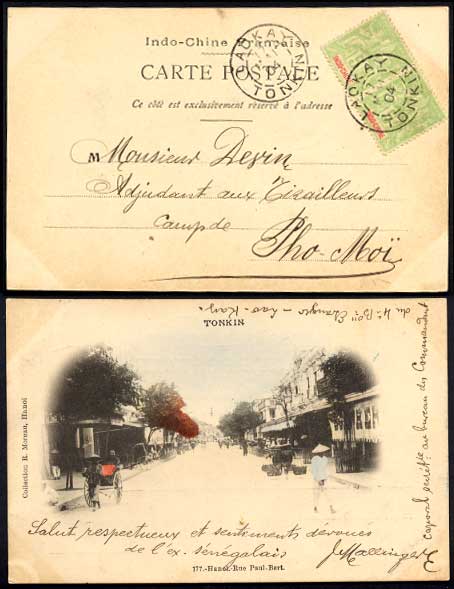 Indo-Chine Française
CARTE POSTALE
Ce côté est exclusivement réservé à l'adresse
LAOKAY
04
TONKIN
LAOKAY
04
TONKIN
M Monsieur Devin
Adjudant aux Tirailleurs
camp de
Pho-Moï
TONKIN
du 4e Bon Etranger - Lao-Kay.
caporal secrét: au bureau du Commandant
Collection R. Moreau, Hanoi
Salut respectueux et sentiments dévoués
de l'ex-sénégalais
177.-Hanoi.-Rue Paul-Bert.